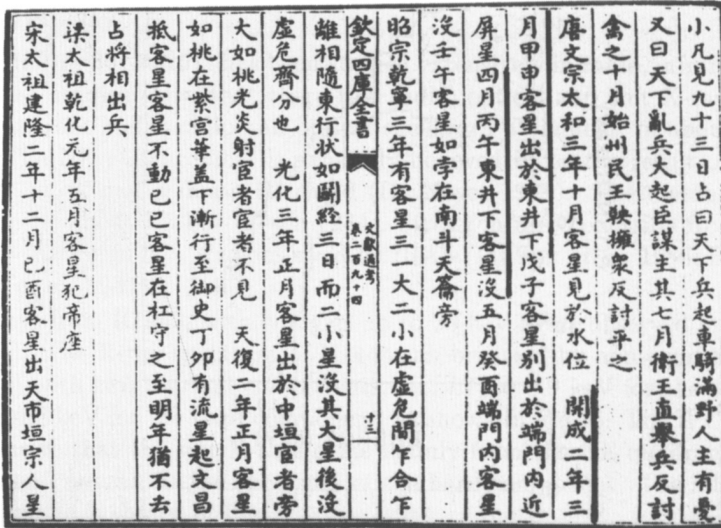 小凡見九十三日占曰天下兵起車騎滿野人主有憂
又曰天下亂兵大起臣謀主其七月衛王直舉兵反討
禽之十月始州民王鞅擁衆反討平之
唐文宗太和三年十月客星見於水位　開成二年三
月甲申客星出於東井下戊子客星别出於端門内近
屏星四月丙午東井下客星沒五月癸酉端門内客星
沒壬午客星如孛在南斗天籥旁
昭宗乾寧三年有客星三一大二小在虛危間乍合乍
欽定四庫全書
文獻通考
卷二百九十四
十三
離相隨東行狀如鬭經三日而二小星沒其大星後沒
虛危齊分也　光化三年正月客星出於中垣宦者旁
大如桃光炎射宦者宦者不見　天復二年正月客星
如桃在紫宫華蓋下漸行至御史丁卯有流星起文昌
抵客星客星不動己巳客星在杠守之至明年猶不去
占將相出兵
梁太祖乾化元年五月客星犯帝座
宋太祖建隆二年十二月己酉客星出天市垣宗人星